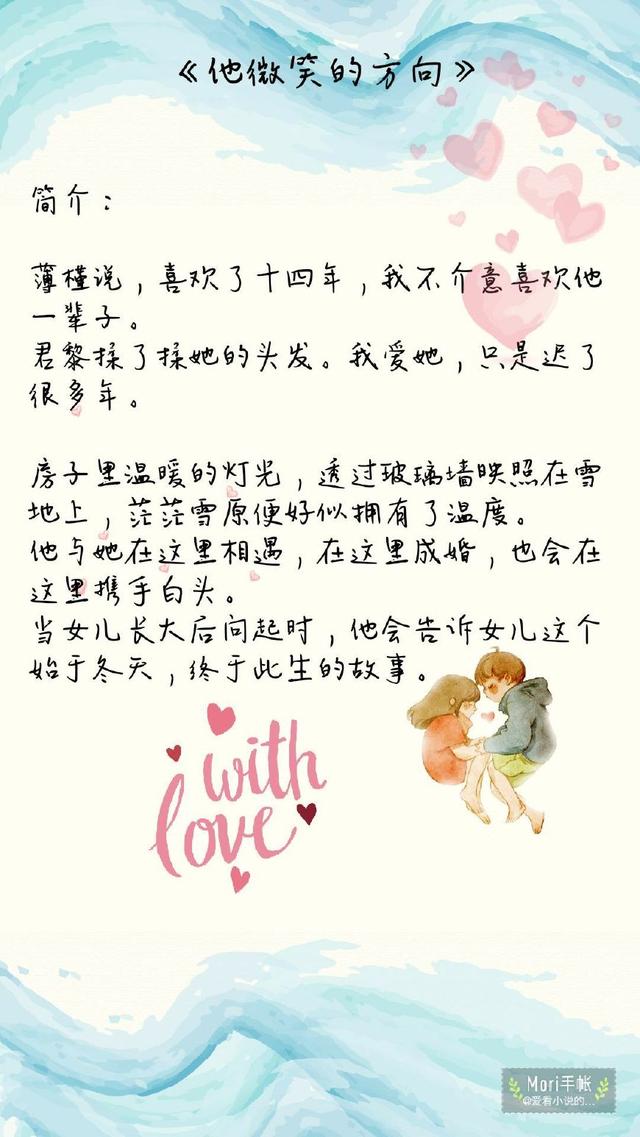 《他微笑的方向》
简介：
薄槿说，喜欢了十四年，我不介意喜欢他
一辈子。
君黎揉了揉她的头发。我爱她，只是迟了
很多年。
房子里温暖的灯光，透过玻璃墙映照在雪
地上，茫茫雪原便好似拥有了温度。
他与她在这里相遇，在这里成婚，也会在
这里携手白头。
当女儿长大后问起时，他会告诉女儿这个
始于冬天，终于此生的故事。
with
love
Mori手帐
@爱看小说的...